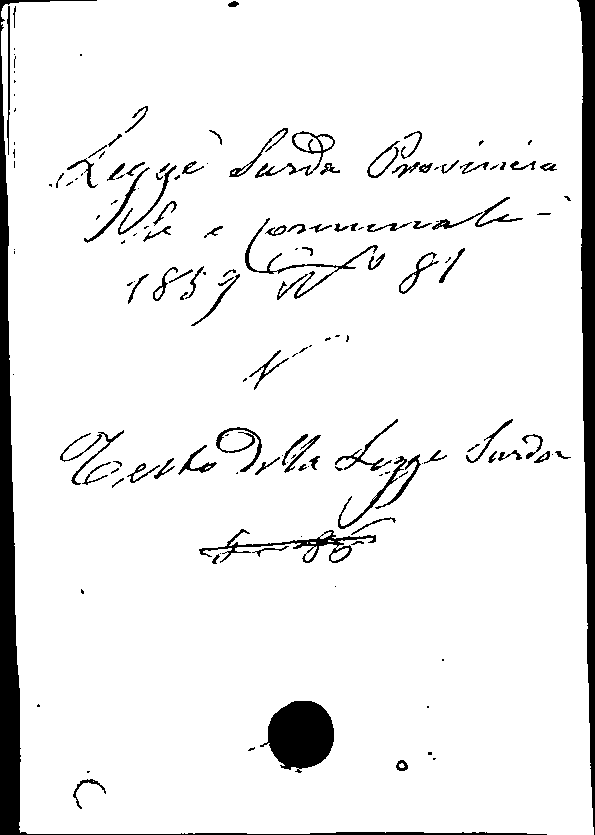 Legge Sarda Provincia
le e Comunale -
1859 N° 81
V
Testo della Legge Sarda